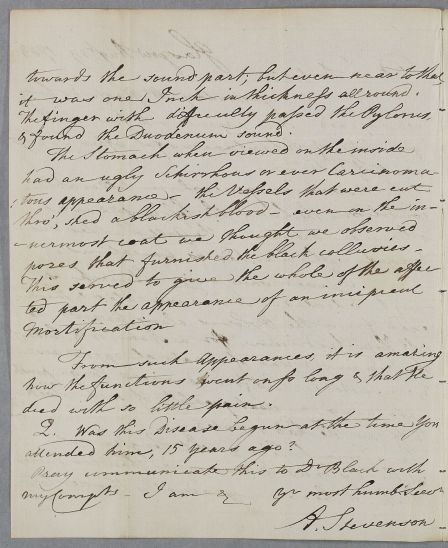 towards the sound part; but even near to that
it was one Inch in thickness all round.
The finger with difficulty passed the Pylorus,
& found the Duodenum sound.
The Stomach when viewed on the inside
had an ugly Schirrhous or even Carcinoma
tous appearance – the Vessels that were cut
thro', shed a blackish blood – even on the in-
-nermost coat we thought we observed
pores that furnished the black colluvies –
This served to give the whole of the affec
ted part the appearance of an incipient
Mortification
From such Appearances, it is amazing
how the functions went on so long & that He
died with so little pain.
Q. Was this Disease begun at the time You
attended him, 15 years ago?
Pray communicate this to Dr Black with
my Compts – I am & yr most humb. Servt
A. Stevenson